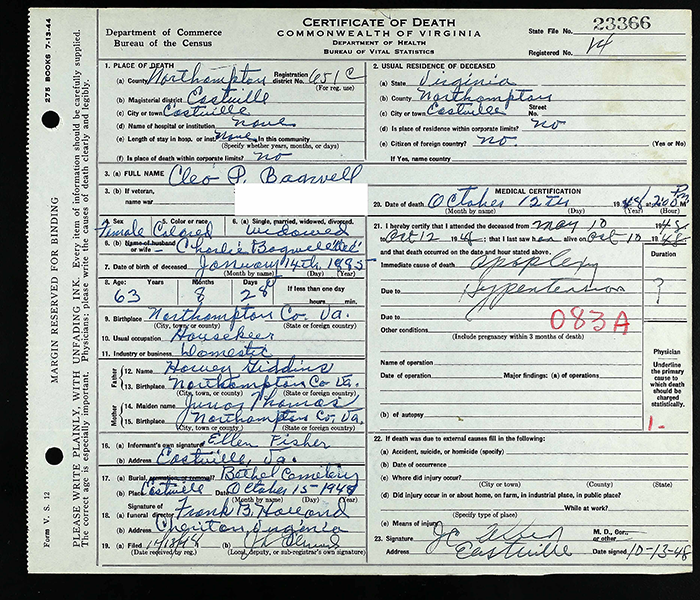 CERTIFICATE OF DEATH
COMMONWEALTH OF VIRGINIA
DEPARTMENT OF HEALTH
BUREAU OF VITAL STATISTICS
Department of Commerce
Bureau of the Census
State File No. 23366
Registered No. 14
275 BOOKS 7-13-44
MARGIN RESERVED FOR BINDING
PLEASE WRITE PLAINLY, WITH UNFADING INK. Every item of information should be carefully supplied.
The correct age is especially important. Physicians: please write the causes of death clearly and legibly.
Form V. S. 12
1. PLACE OF DEATH
(a) County Northampton Registration district No. 651C (For reg. use)
(b) Magisterial district Eastville
(c) City or town Eastville
(d) Name of hospital or institution none
(e) Length of stay in hosp. or inst. none In this community
(Specify whether years, months, or days)
(f) Is place of death within corporate limits? no
2. USUAL RESIDENCE OF DECEASED
(a) State Virginia
(b) County Northampton
(c) City or town Eastville Street No.
(d) Is place of residence within corporate limits? no
(e) Citizen of foreign country? no (Yes or No)
If Yes, name country
3. (a) FULL NAME Cleo P. Bagwell
3. (b) If veteran,
name war
4. Sex 5. Color or race 6. (a) Single, married, widowed, divorced.
Female Colored Widowed
6. (b) Name of husband or wife Charlie Bagwell
7. Date of birth of deceased January 14th 1885
(Month by name) (Day) (Year)
8. Age: Years Months Days If less than one day
63 8 28 hours min.
9. Birthplace Northampton Co. Va.
(City, town, or county) (State or foreign country)
10. Usual occupation
11. Industry or business Domestic
Father
12. Name Giddins
13. Birthplace Northampton Co Va.
(City, town, or county) (State or foreign country)
Mother
14. Maiden name Thomas
15. Birthplace Northampton Co, Va.
(City, town or county) (State or foreign country)
16. (a) Informant's own signature Ellen Fisher
(b) Address Eastville, Va.
17. (a) Burial, cremation or removal? Bethel Cemetery
(b) Place Eastville Date October 15-1948
(Month by name) (Day) (Year)
18. Signature of
(a) funeral director Frank B. Holland
(b) Address Cheriton, Virginia
19. (a) Filed (b)
(Date received by reg.) (Local, deputy, or sub-registrar's own signature)
MEDICAL CERTIFICATION
20. Date of death October 12th 1948, at 2:00 P.m
(Month by name) (Day) (Year) (Hour)
21. I hereby certify that I attended the deceased from May 10 1948
to Oct 12 1948; that I last saw her alive on Oct 10 1948
and that death occurred on the day and hour stated above.
Duration
Immediate cause of death Apoplexy
Due to Hypertension ?
Due to
083A
Other conditions
(Include pregnancy within 3 months of death)
Name of operation
Date of operation Major findings: (a) of operations
(b) of autopsy
Physician
Underline the primary cause to which death should be charged statistically.
1.
22. If death was due to external causes fill in the following:
(a) Accident, suicide, or homicide (specify)
(b) Date of occurrence
(c) Where did injury occur?
(City or town) (County) (State)
(d) Did injury occur in or about home, on farm, in industrial place, in public place?
While at work?
(Specify type of place)
(e) Means of injury
23. Signature M. D., Cor. or other
Address Eastville Date signed 10-13-48